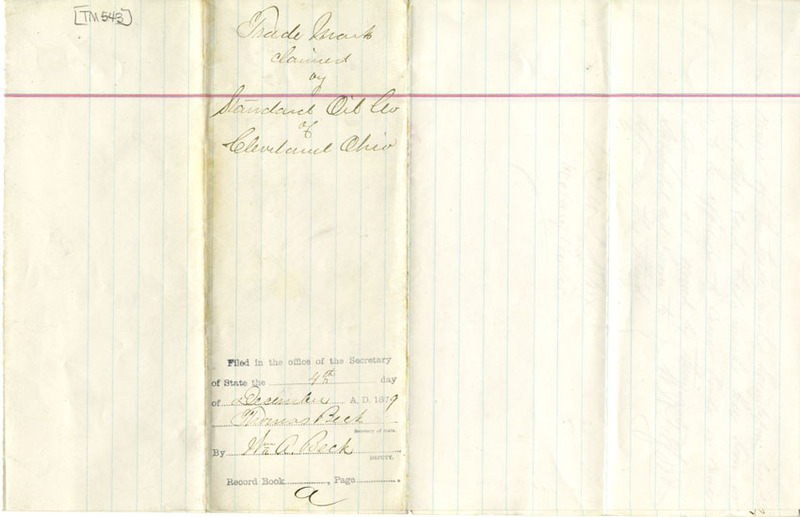 [TM 543]
Trade Mark
claimed
by
Standard Oil Co
of
Cleveland Ohio
Filed in the office of the Secretary
of State the 4th day
of December A. D. 1879
Thomas Beck
Secretary of State.
By Wm A. Beck
DEPUTY.
Record Book , Page
a